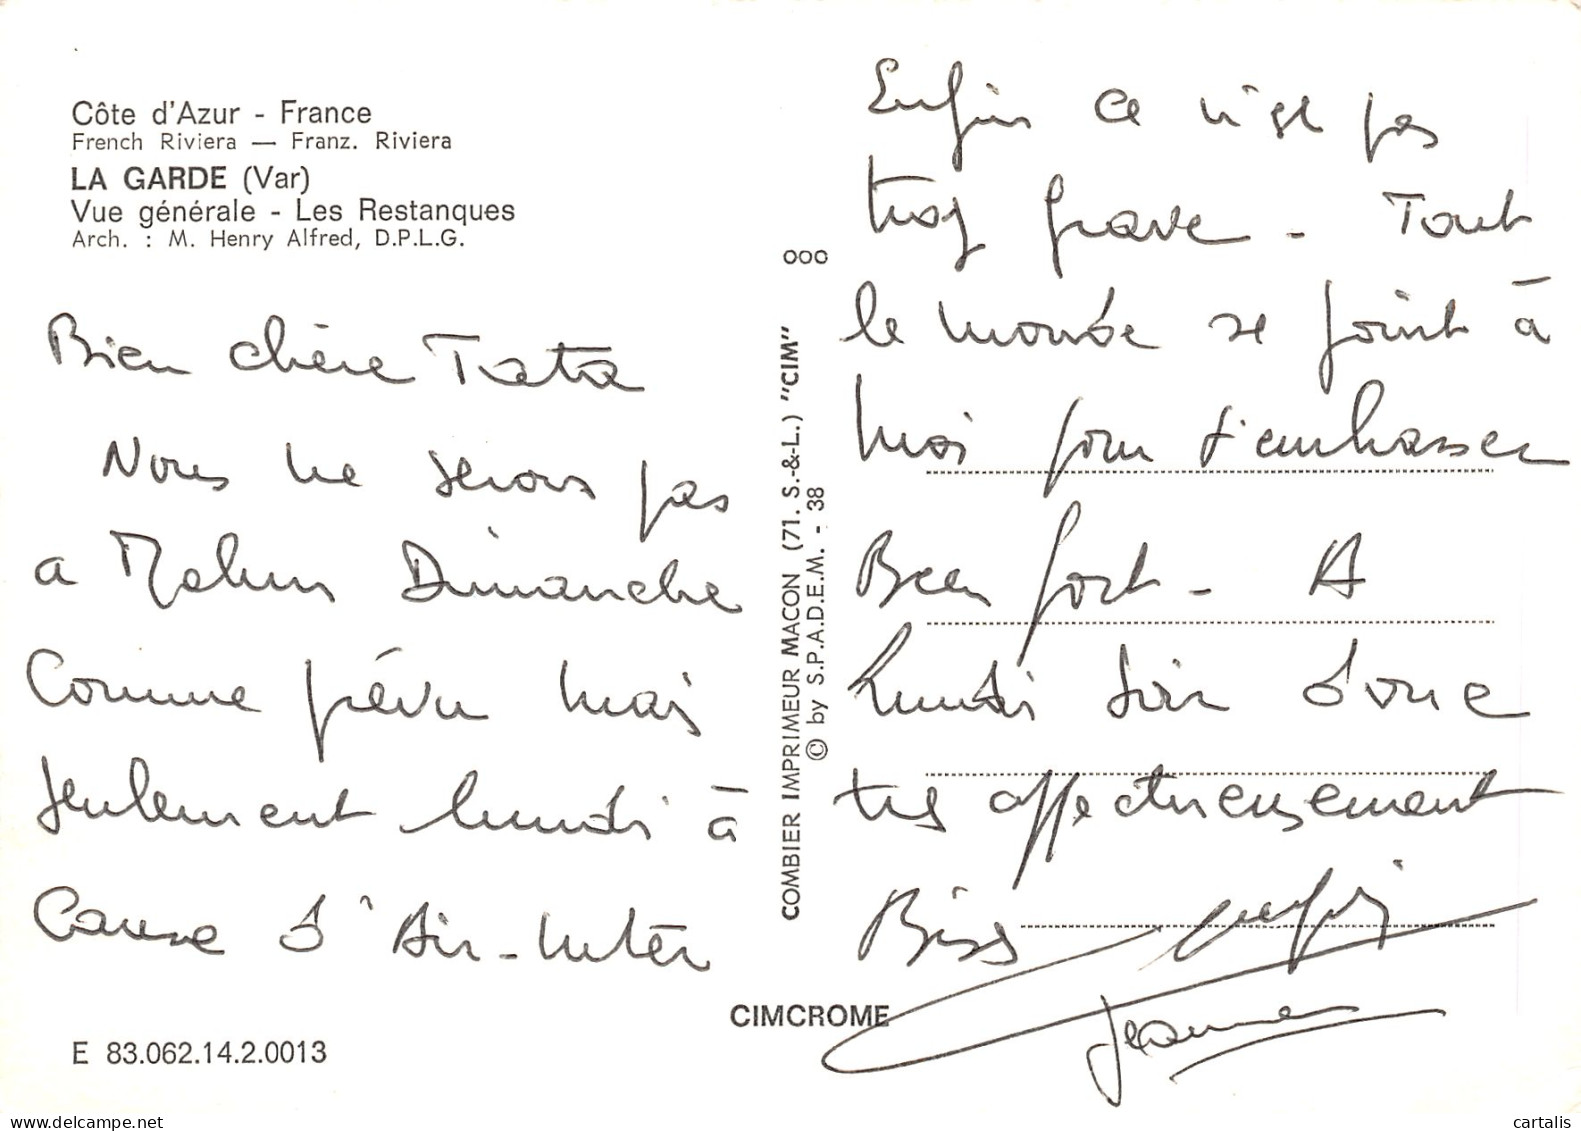 Côte d'Azur - France
French Riviera — Franz. Riviera
LA GARDE (Var)
Vue générale - Les Restanques
Arch. : M. Henry Alfred, D.P.L.G.
Bien chère Tata
Nous ne serons pas
a Melun Dimanche
Comme prévu mais
seulement lundi à
Cause d'Air-Inter
E 83.062.14.2.0013
COMBIER IMPRIMEUR MACON (71. S.-&-L.) "CIM"
© by S.P.A.D.E.M. - 38
CIMCROME
Enfin ce n'est pas
trop grave - Tout
le monde se joint à
moi pour t'embrasser
Bien fort - A
lundi soir donc
très affectueusement
Biss
Jeanne
delcampe.net
cartalis